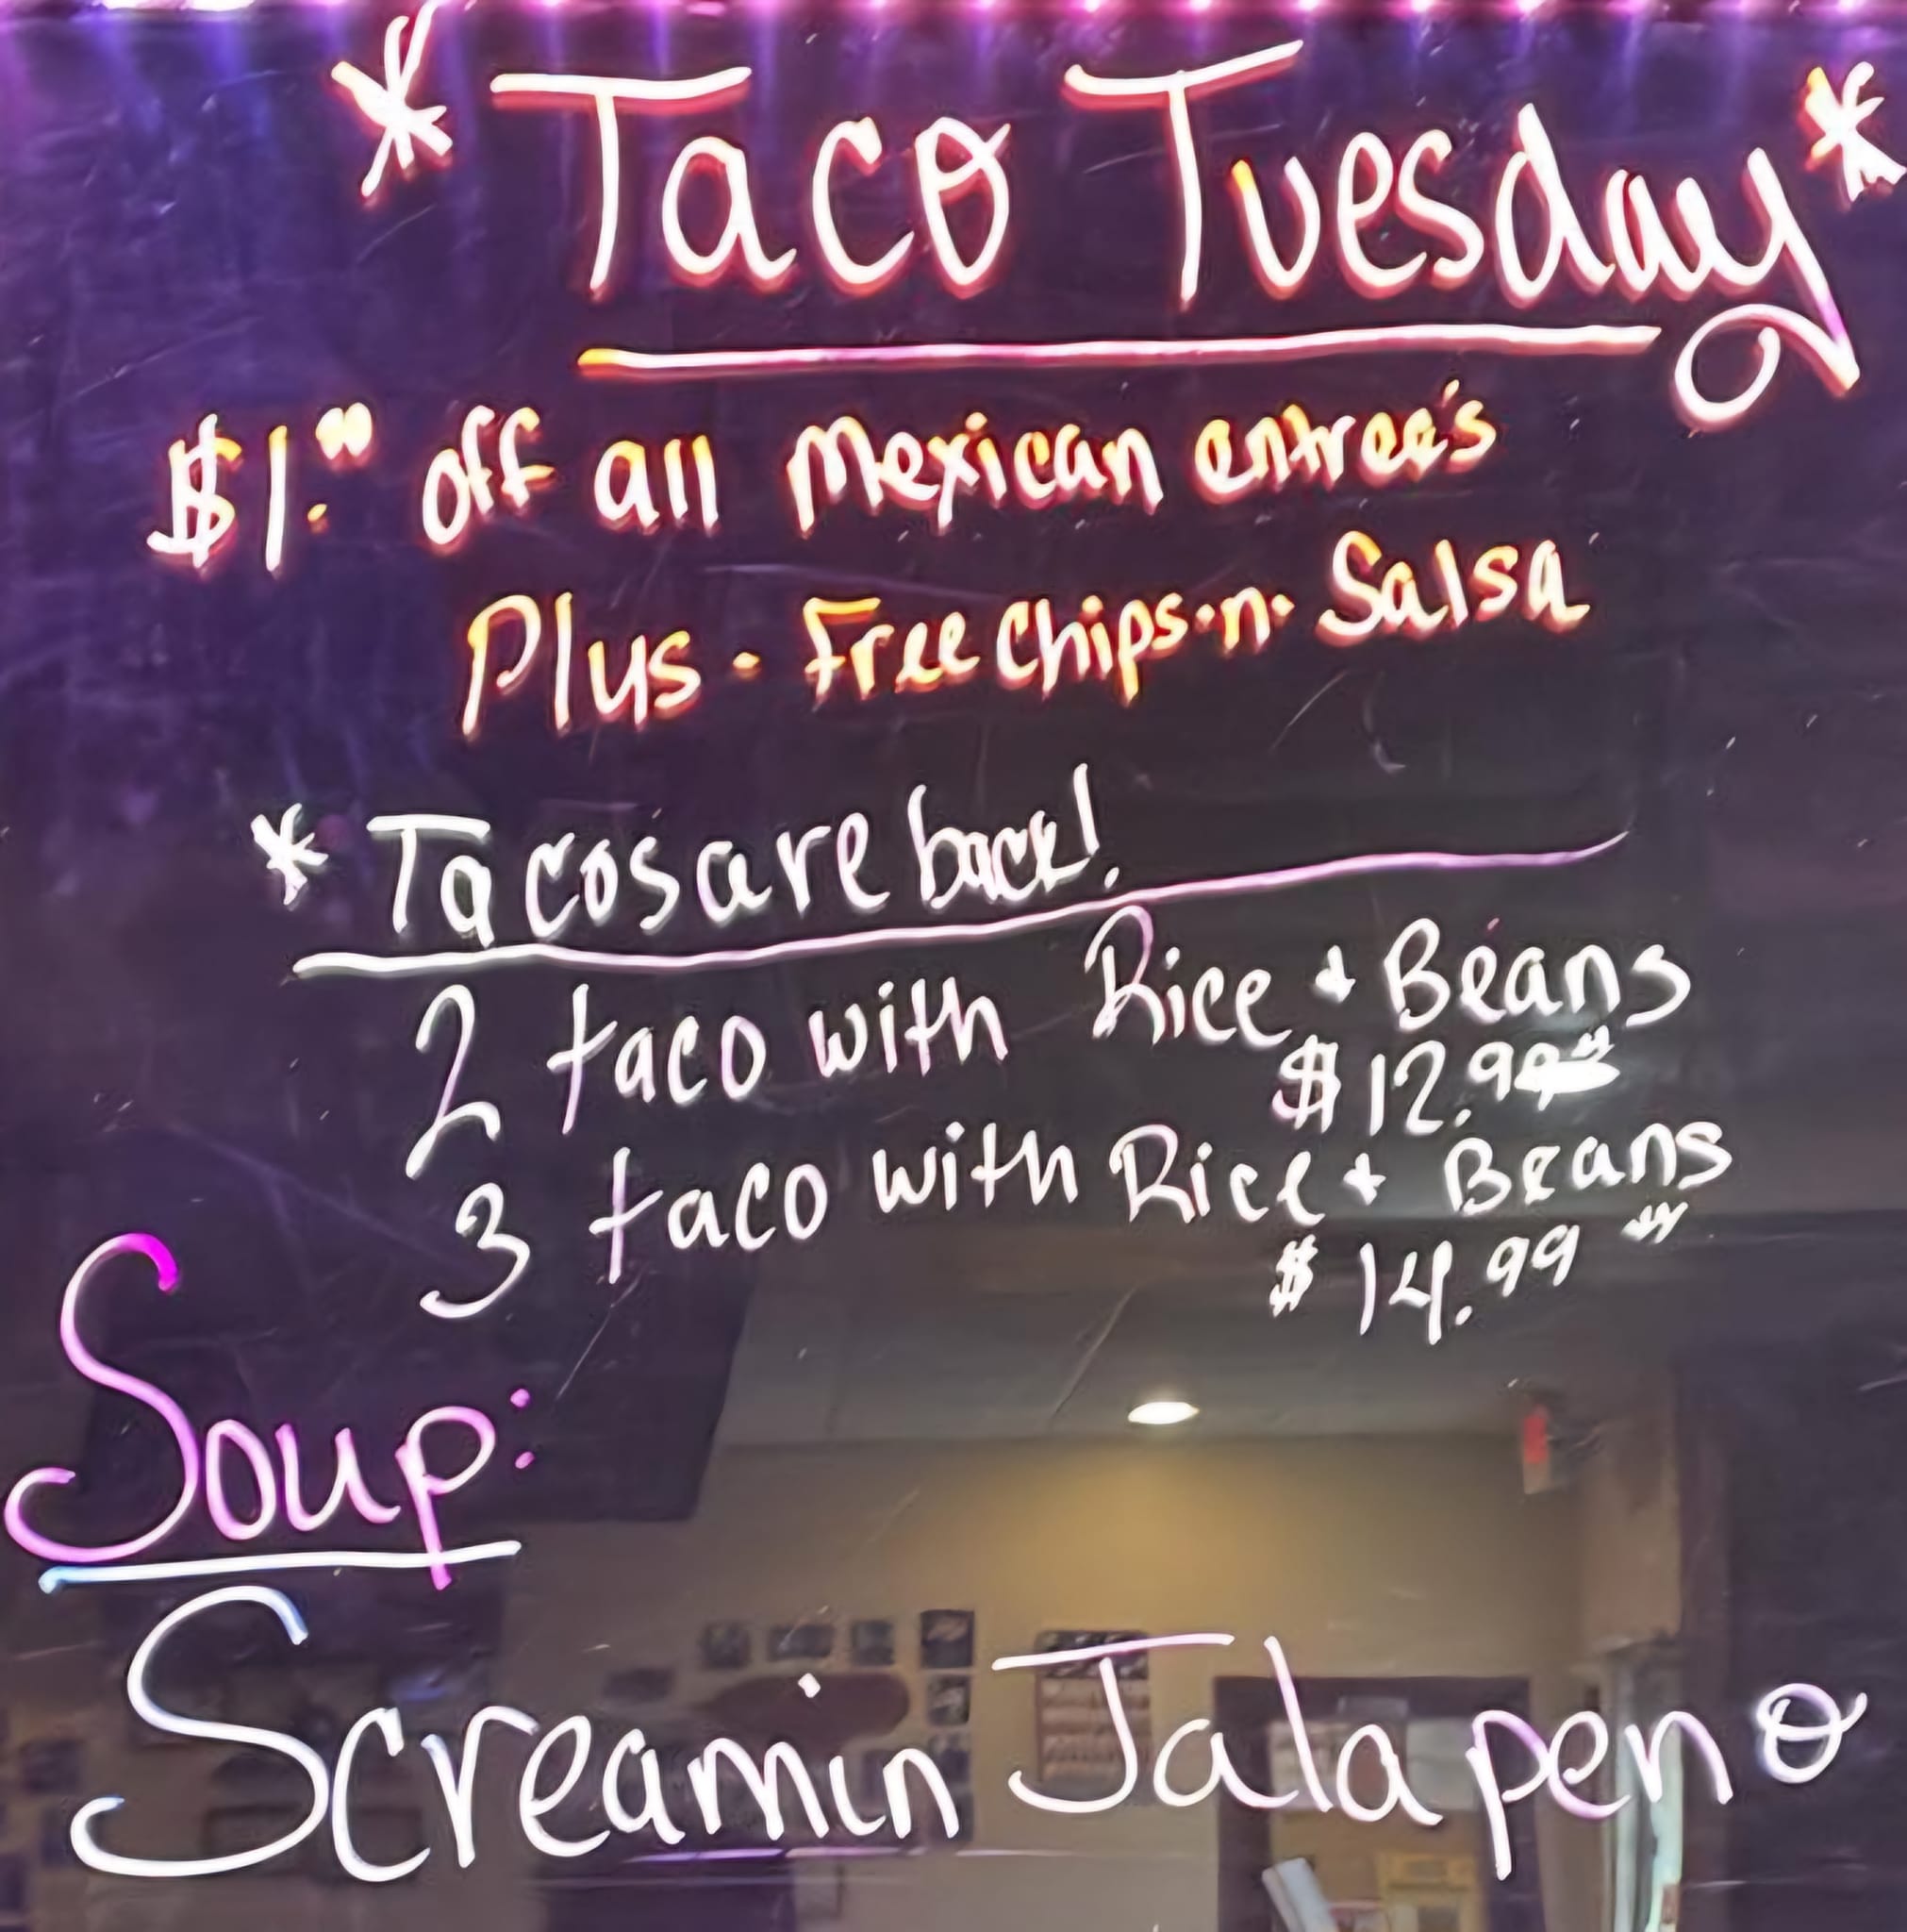 * Taco Tuesday *
$1.00 off all Mexican entree's
Plus · Free Chips·n· Salsa
* Taco's are back!
2 taco with Rice + Beans
$12.99
3 taco with Rice + Beans
$14.99
Soup:
Screamin Jalapeno